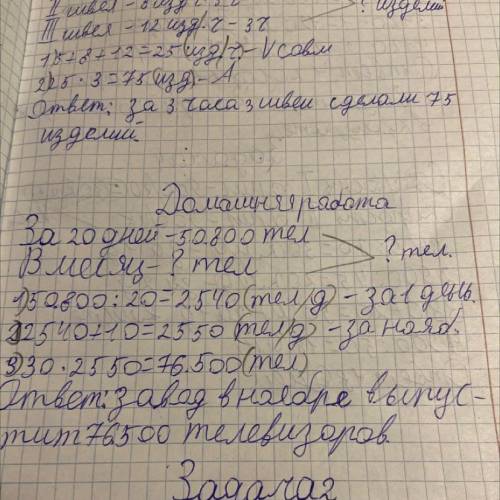 II швея - 8 изд/ч
III швея - 12 изд/ч - 3ч ? изделий
1) 5+8+12=25 (изд/ч) - V совм
2) 25 · 3=75 (изд) - А
Ответ: за 3 часа 3 швеи сделали 75
изделий.
Домашняя работа
За 20 дней - 50.800 тел
В месяц - ? тел ? тел.
1) 50.800 : 20 = 2540 (тел/д) - за 1 день.
2) 2540+10=2550 (тел/д) - за нояб.
3) 30 · 2550=76.500 (тел)
Ответ: завод в ноябре выпус-
тит 76500 телевизоров.
Задача 2